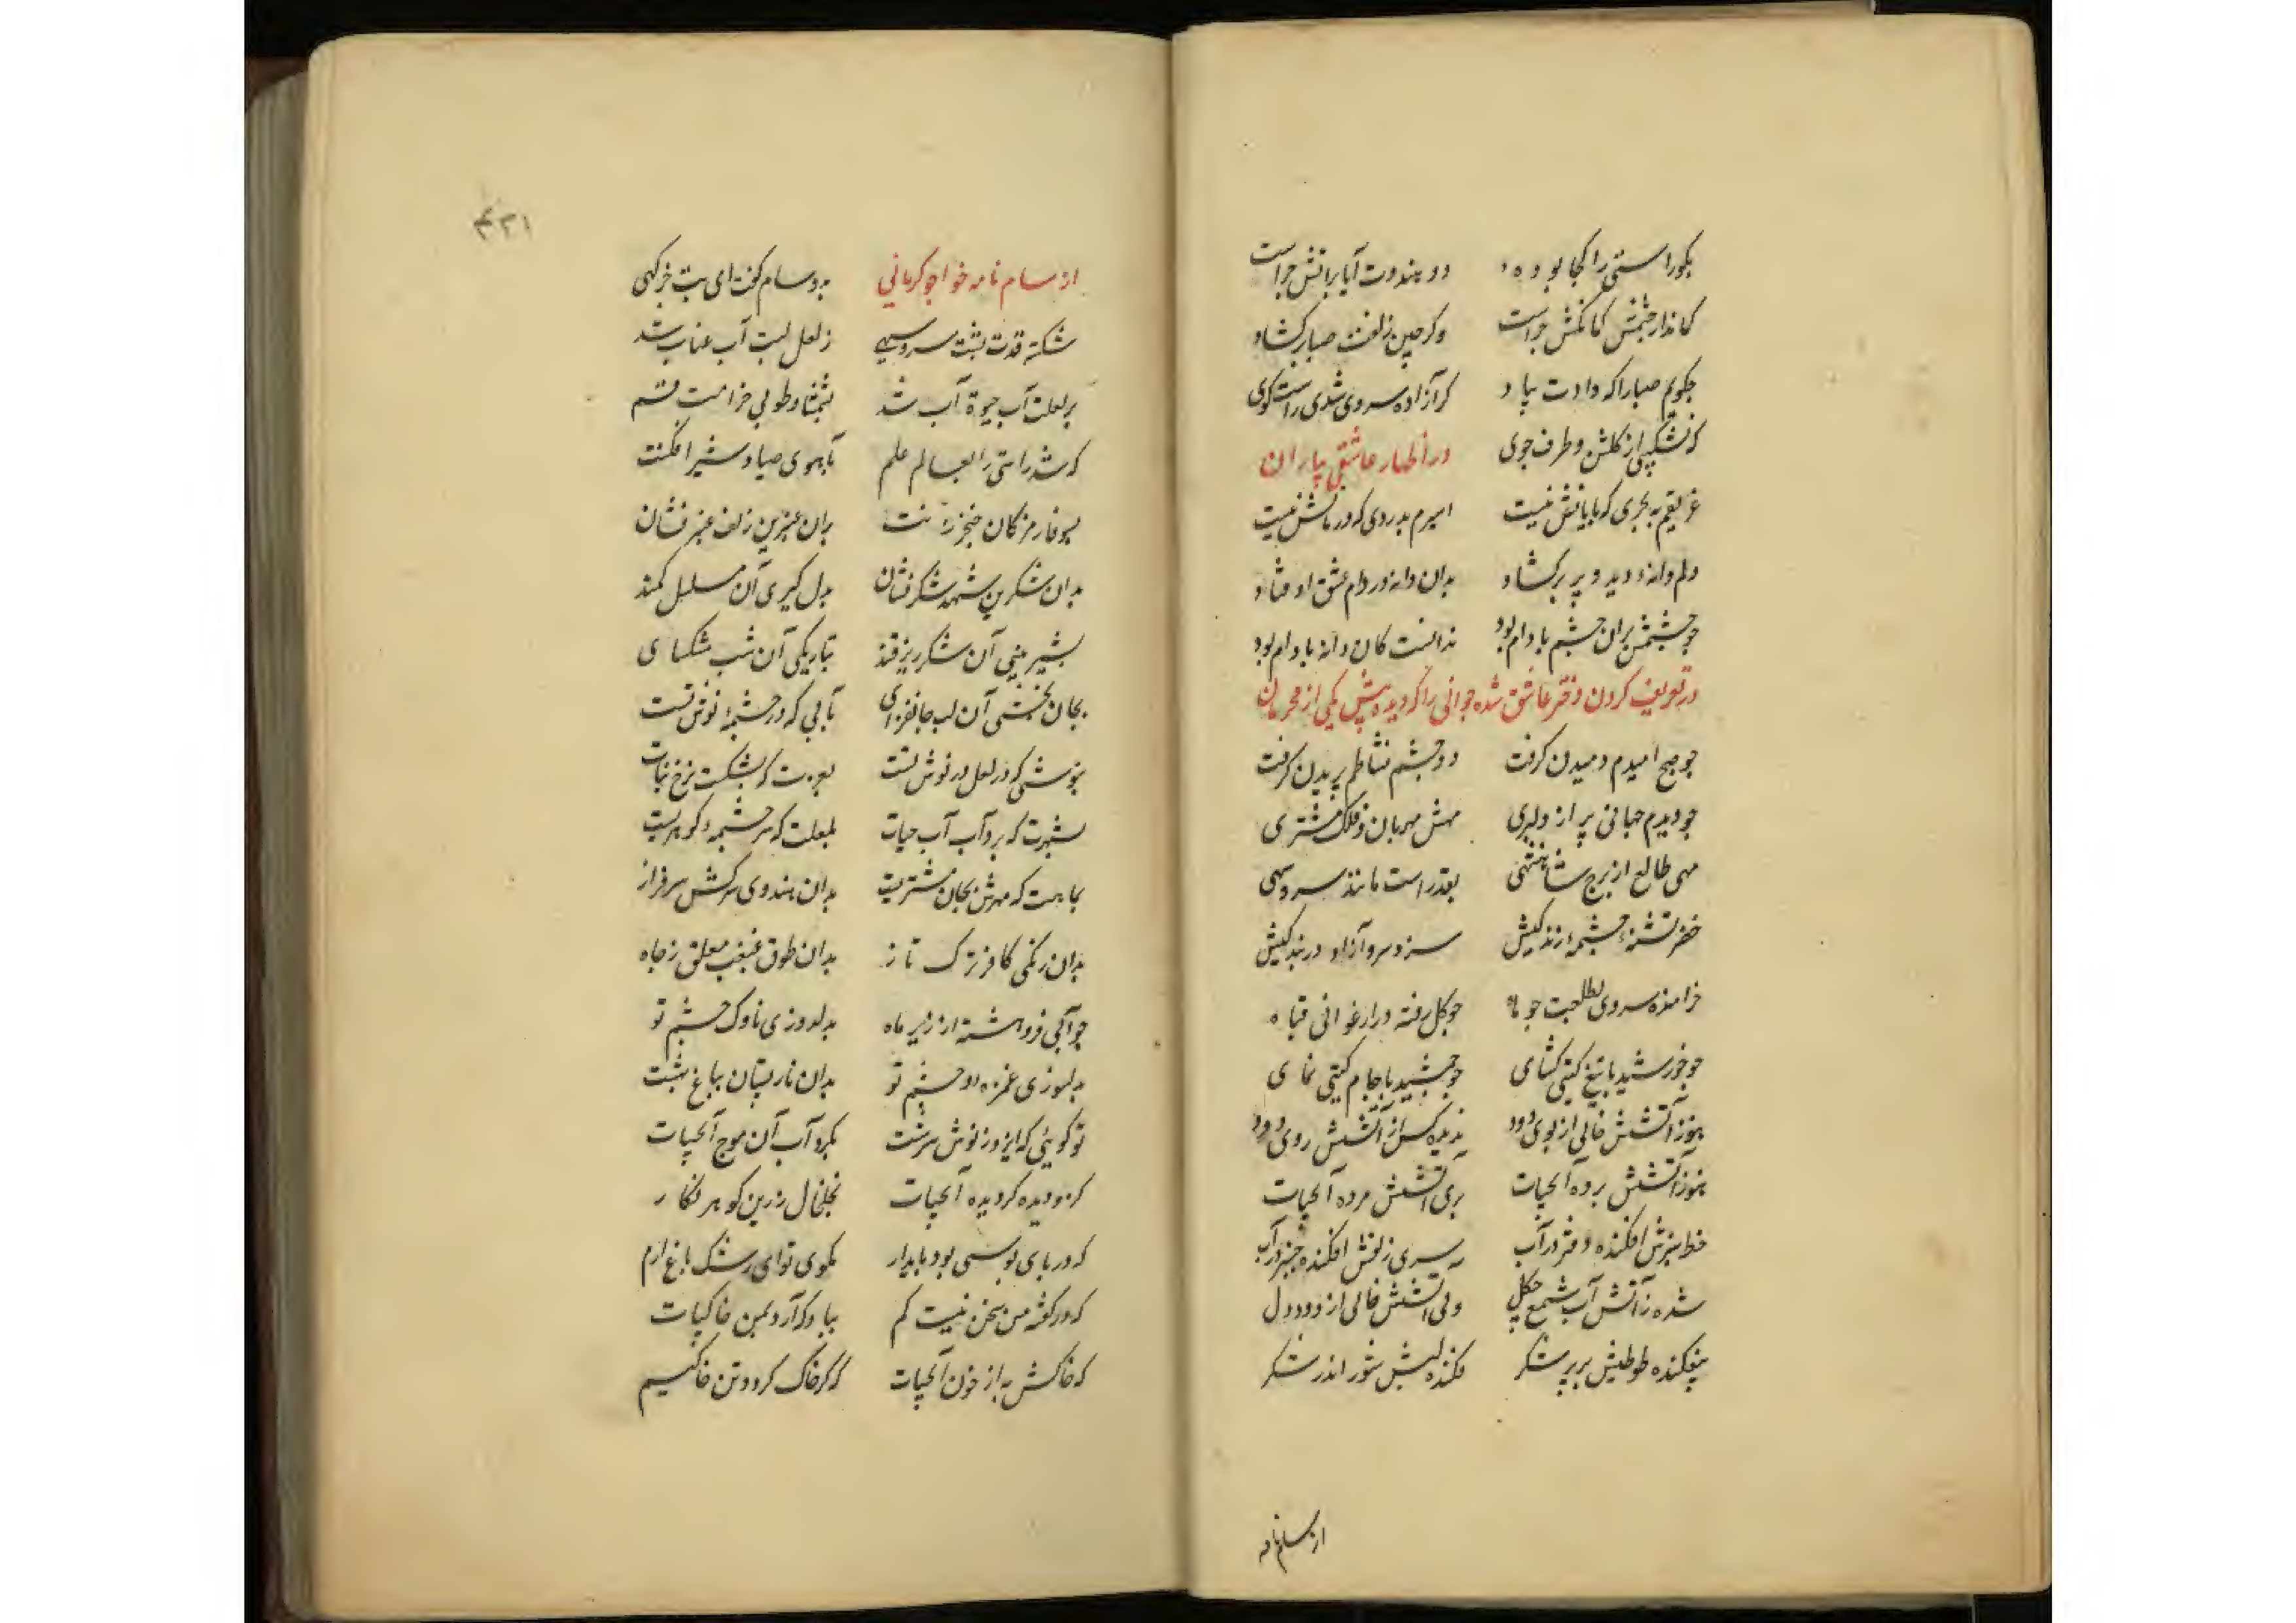 بگو راستی را کجا بوده دو هندوت آیا بر آتش چراست
کماندار چشمش کمانکش چراست وگر چین زلفت صبا برکشاد
چگویم صبا را که دادت بباد گر آزاده سروی شدی راست گوی
که نشکیبی از گلشن و طرف جوی در اظهار عاشقی بیاران
غریقم به بحری که پایانش نیست اسیرم بدردی که درمانش نیست
دلم دانه دید و پر برکشاد بدان دانه در دام عشق اوفتاد
چو چشمش بران چشم بادام بود ندانست کان دانه با دام بود
در تعریف کردن دختر عاشق شده جوانی را که دیده پیش یکی از محرمان
چو صبح امیدم دمیدن گرفت دو چشم نشاطم پریدن گرفت
چو دیدم جهانی پر از دلبری مهش مهربان و فلک مشتری
مهی طالع از برج شاهنشهی بقد راست مانند سرو سهی
خضر تشنهٔ چشمهٔ زندگیش سزد سرو آزاد در بندگیش
خرامنده سروی بطلعت چو ماه چو گل رفته در ارغوانی قباه
چو خورشید با تیغ گیتی کشای چو جمشید با جام گیتی نمای
هنوز آتشش خالی از بوی دود ندیده کس از آتشش روی دود
هنوز آتشش برده آبحیات بری آتشش مرده آبحیات
خط سبزش افکنده دفتر در آب سری زلفش افکنده چنبر در آب
شده ز آتشش آب شمع چگل ولی آتشش خالی از دود دل
بیفکنده طوطیش پر بر شکر فکنده لبش شور اندر شکر
از سام نامه
۴۳۱
از سام نامه خواجو کرمانی بدو سام گفت ای بت خرگهی
شکسته قدت پشت سرو سهی ز لعل لبت آب عناب شد
بر لعلت آب حیوة آب شد بشمشاد طوبی خرامت قسم
که شد راستی را بعالم علم بآهوی صیاد شیرافکنت
بسوفار مژگان خنجر زنت بدان عنبرین زلف عنبر فشان
بدان شکرین شهد شکر فشان بدل گیری آن مسلسل کمند
بشیرینی آن شکر ریز قند بتاریکی آن شب مشکسای
بجان بخشی آن لب جانفزای بآبی که در چشمهٔ نوش تست
بنوشی که در لعل در نوش تست که بشکست نرخ نبات
که برد آب آب حیات بلعلت که سرچشمهٔ گوهرست
بماهت که مهرش بجان مشتریست بدان هندوی سرکش سرفراز
بدان زنگی کافر ترک تاز بدان طوق غبغب معلق ز جاه
چو آبی فرو هشته از زیر ماه بدلدوزی ناوک چشم تو
بدلسوزی غمزه و چشم تو بدان نار پستان بباغ بهشت
تو گوئی که ایزد ز نوش سرشت بگرد آب آن موج آبحیات
کزو دیده گردیده آبحیات بخلخال زرین گوهر نگار
که در پای بوسی بود پایدار بکوی تو ای رشک باغ ارم
که در گفتهٔ من سخن نیست کم بباد که آرد بمن خاکپات
که خاکش به از خون آبحیات که گر خاک گردد تن خاکیم